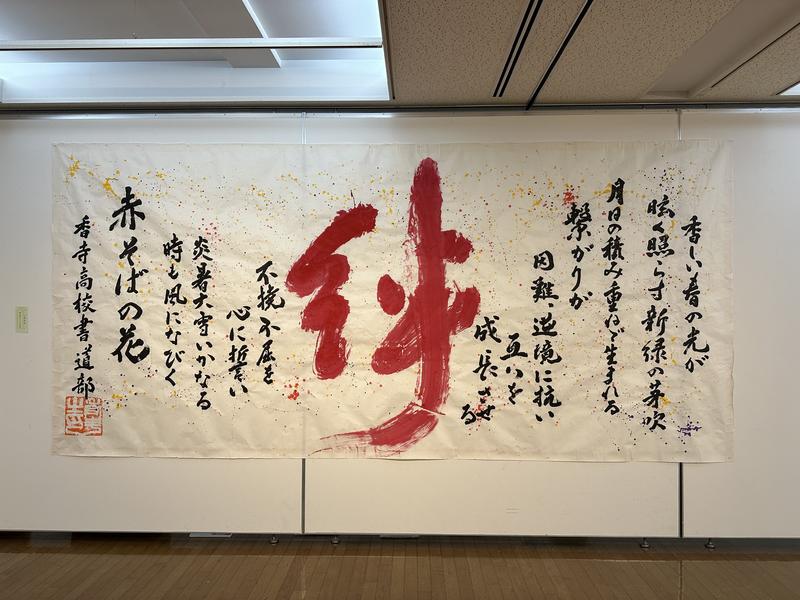 香しい春の光が
眩く照らす新緑の芽吹
月日の積み重ねで生まれる
繋がりが
困難、逆境に抗い
互いを
成長させ
る
絆
不撓不屈を
心に誓い
炎暑大雪いかなる
時も風になびく
赤そばの花
香寺高校書道部